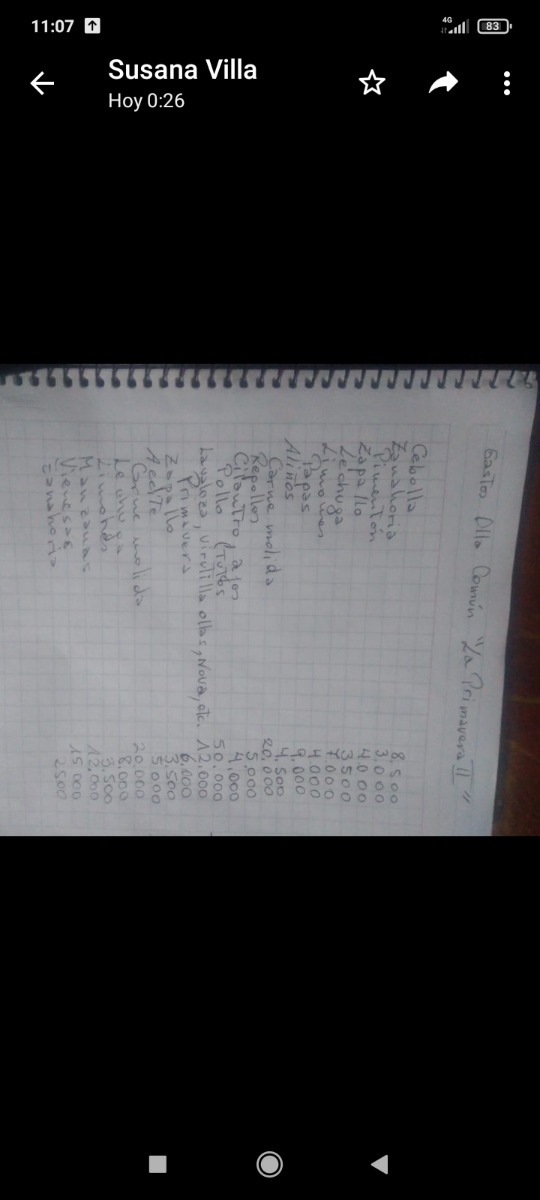 11:07
4G
83
Susana Villa
Hoy 0:26
Gastos Olla Común "La Primavera II"
Cebolla 8.500
Zanahoria 3.000
Pimentón 4.000
Zapallo 3.500
Lechuga 7.000
Limones 4.000
Papas 9.000
Aliños 4.500
Carne molida 20.000
Repollos 5.000
Cilantro 4.000
Pollo (Tutos 50.000
Lavaloza, virutilla ollas, Nova, etc. 12.000
Primavera 6.000
Zapallo 3.500
Aceite 5.000
Carne molida 20.000
Lechuga 8.000
Limones 3.500
Manzanas 12.000
Vienesas 15.000
Zanahoria 2500